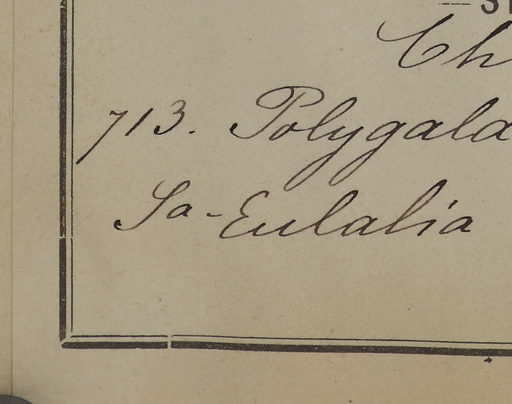 Ch
713. Polygala
Sa-Eulalia